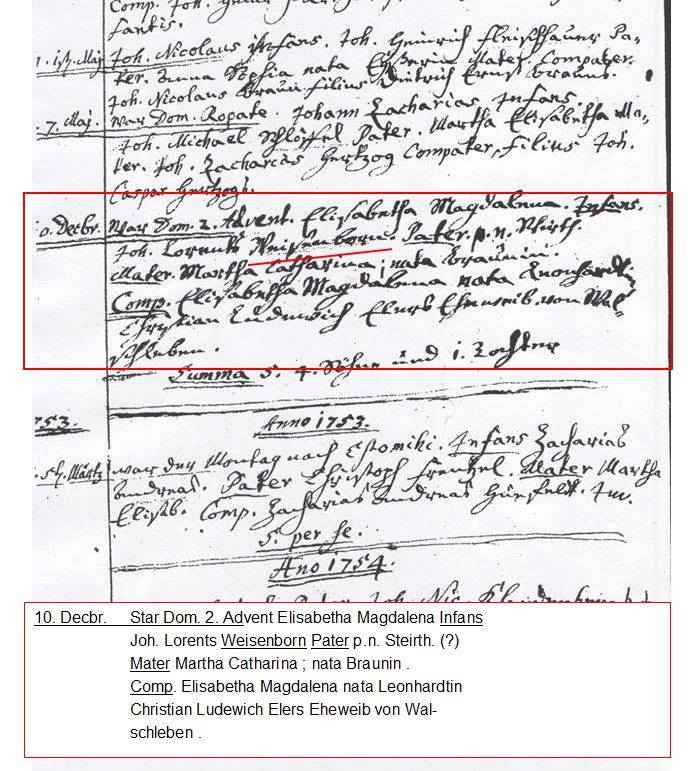 Comp. Joh.
fantis.
1. ist. Maj Joh. Nicolaus Infans. Joh. Heinrich Fleischhauer Pa-
ter. Anna Rosia nata Mater. Compater
Joh. Nicolaus Braun filius Dietrich Ernst Brauns.
7. Maj. war Dom. Rogate. Johann Zacharias, Infans.
Joh. Michael Pater. Martha Elisabetha Ma-
ter. Joh. Zacharias Hertzog Compater, filius Joh.
Caspar Hertzogs.
0. Decbr. War Dom. 2. Advent. Elisabetha Magdalena. Infans.
Joh. Lorents Weisenborn. Pater. p. n. Wirth.
Mater. Martha Catharina, nata Braunin.
Comp. Elisabetha Magdalena nata Leonhardtin
Christian Ludewich Elers Eheweib. von Wal-
schleben.
Summa 5. 4. Söhne und 1. Tochter
753. Anno 1753.
5t. Märtz war der Montag nach Estomihi. Infans Zacharias
Andreas. Pater Christoph Frenzel. Mater Martha
Elisb. Comp. Zacharias Andreas
S. per se.
Ano 1754.
10. Decbr. Star Dom. 2. Advent Elisabetha Magdalena Infans
Joh. Lorents Weisenborn Pater p.n. Steirth. (?)
Mater Martha Catharina ; nata Braunin .
Comp. Elisabetha Magdalena nata Leonhardtin
Christian Ludewich Elers Eheweib von Wal-
schleben .